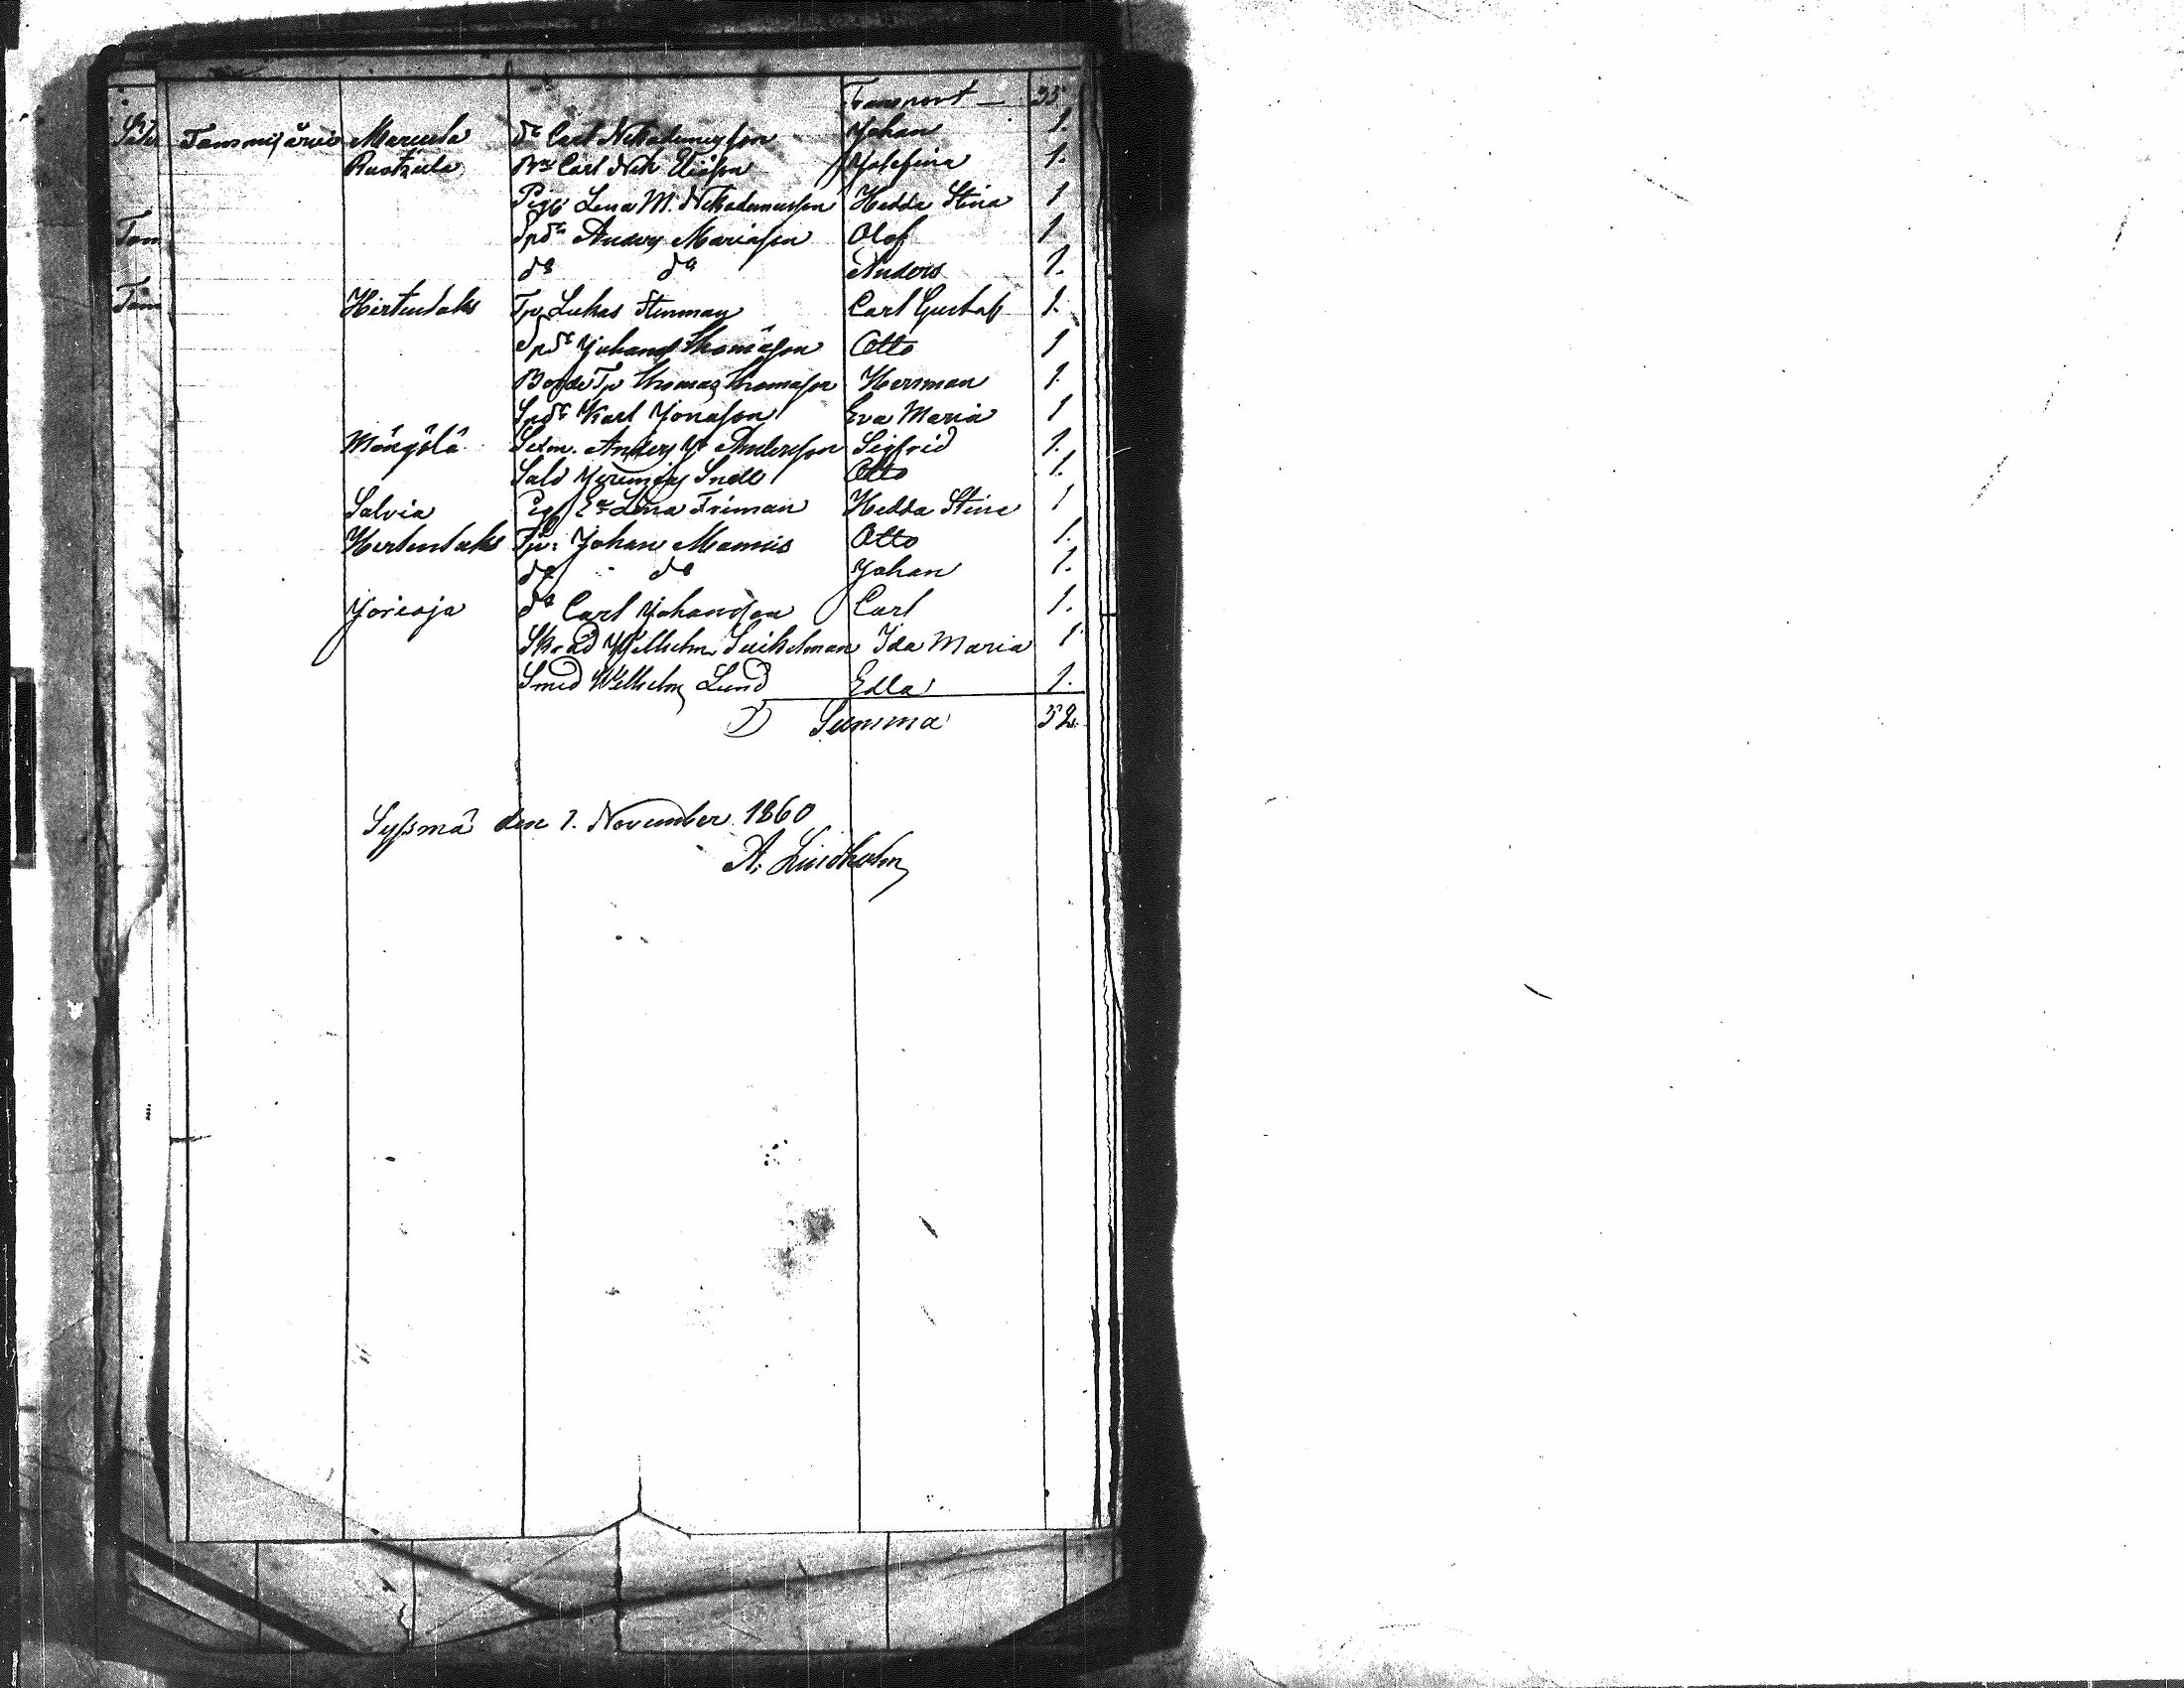 Transport — 35
Tammijärvi Marcula do Carl Nikodemusson Johan 1.
Ruotzula Bm Carl Nik Eliasson Josefina 1.
Pig: Lena M. Nikodemusson Hedda Stina 1
Spdr Anders Mariasson Olof 1
do do Anders 1.
Hirtulaks Tp Lukas Stenman Carl Gustaf 1.
Spdr Johan Thomasson Otto 1
Bonde Tp Thomas Thomasson Herman 1.
Spdr Karl Jonasson Eva Maria 1
Mängölä Anders Andersson Sigfrid 1.
Sald Jeremias Snell Otto 1.
Salvia Pig Ea Lena Friman Hedda Stina 1
Hertulaks Tp: Johan Otto 1.
do do Johan 1.
Jorioja do Carl Johansson Carl 1.
Skräd Wilhelm Ida Maria 1
Smed Wilhelm Lund Edla 1.
Summa 52.
Syssmä den 1. November 1860
A. Lindholm
Tam
Tam